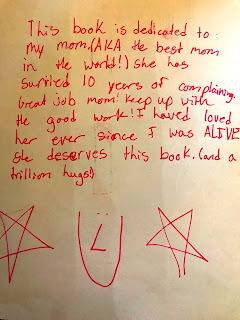 This book is dedicated to
my mom.(AKA the best mom
in the world!) She has
survived 10 years of complaining.
Great job mom! Keep up with
the good work! I haved loved
her ever since I was ALIVE
She deserves this book. (and a
trillion hugs!)